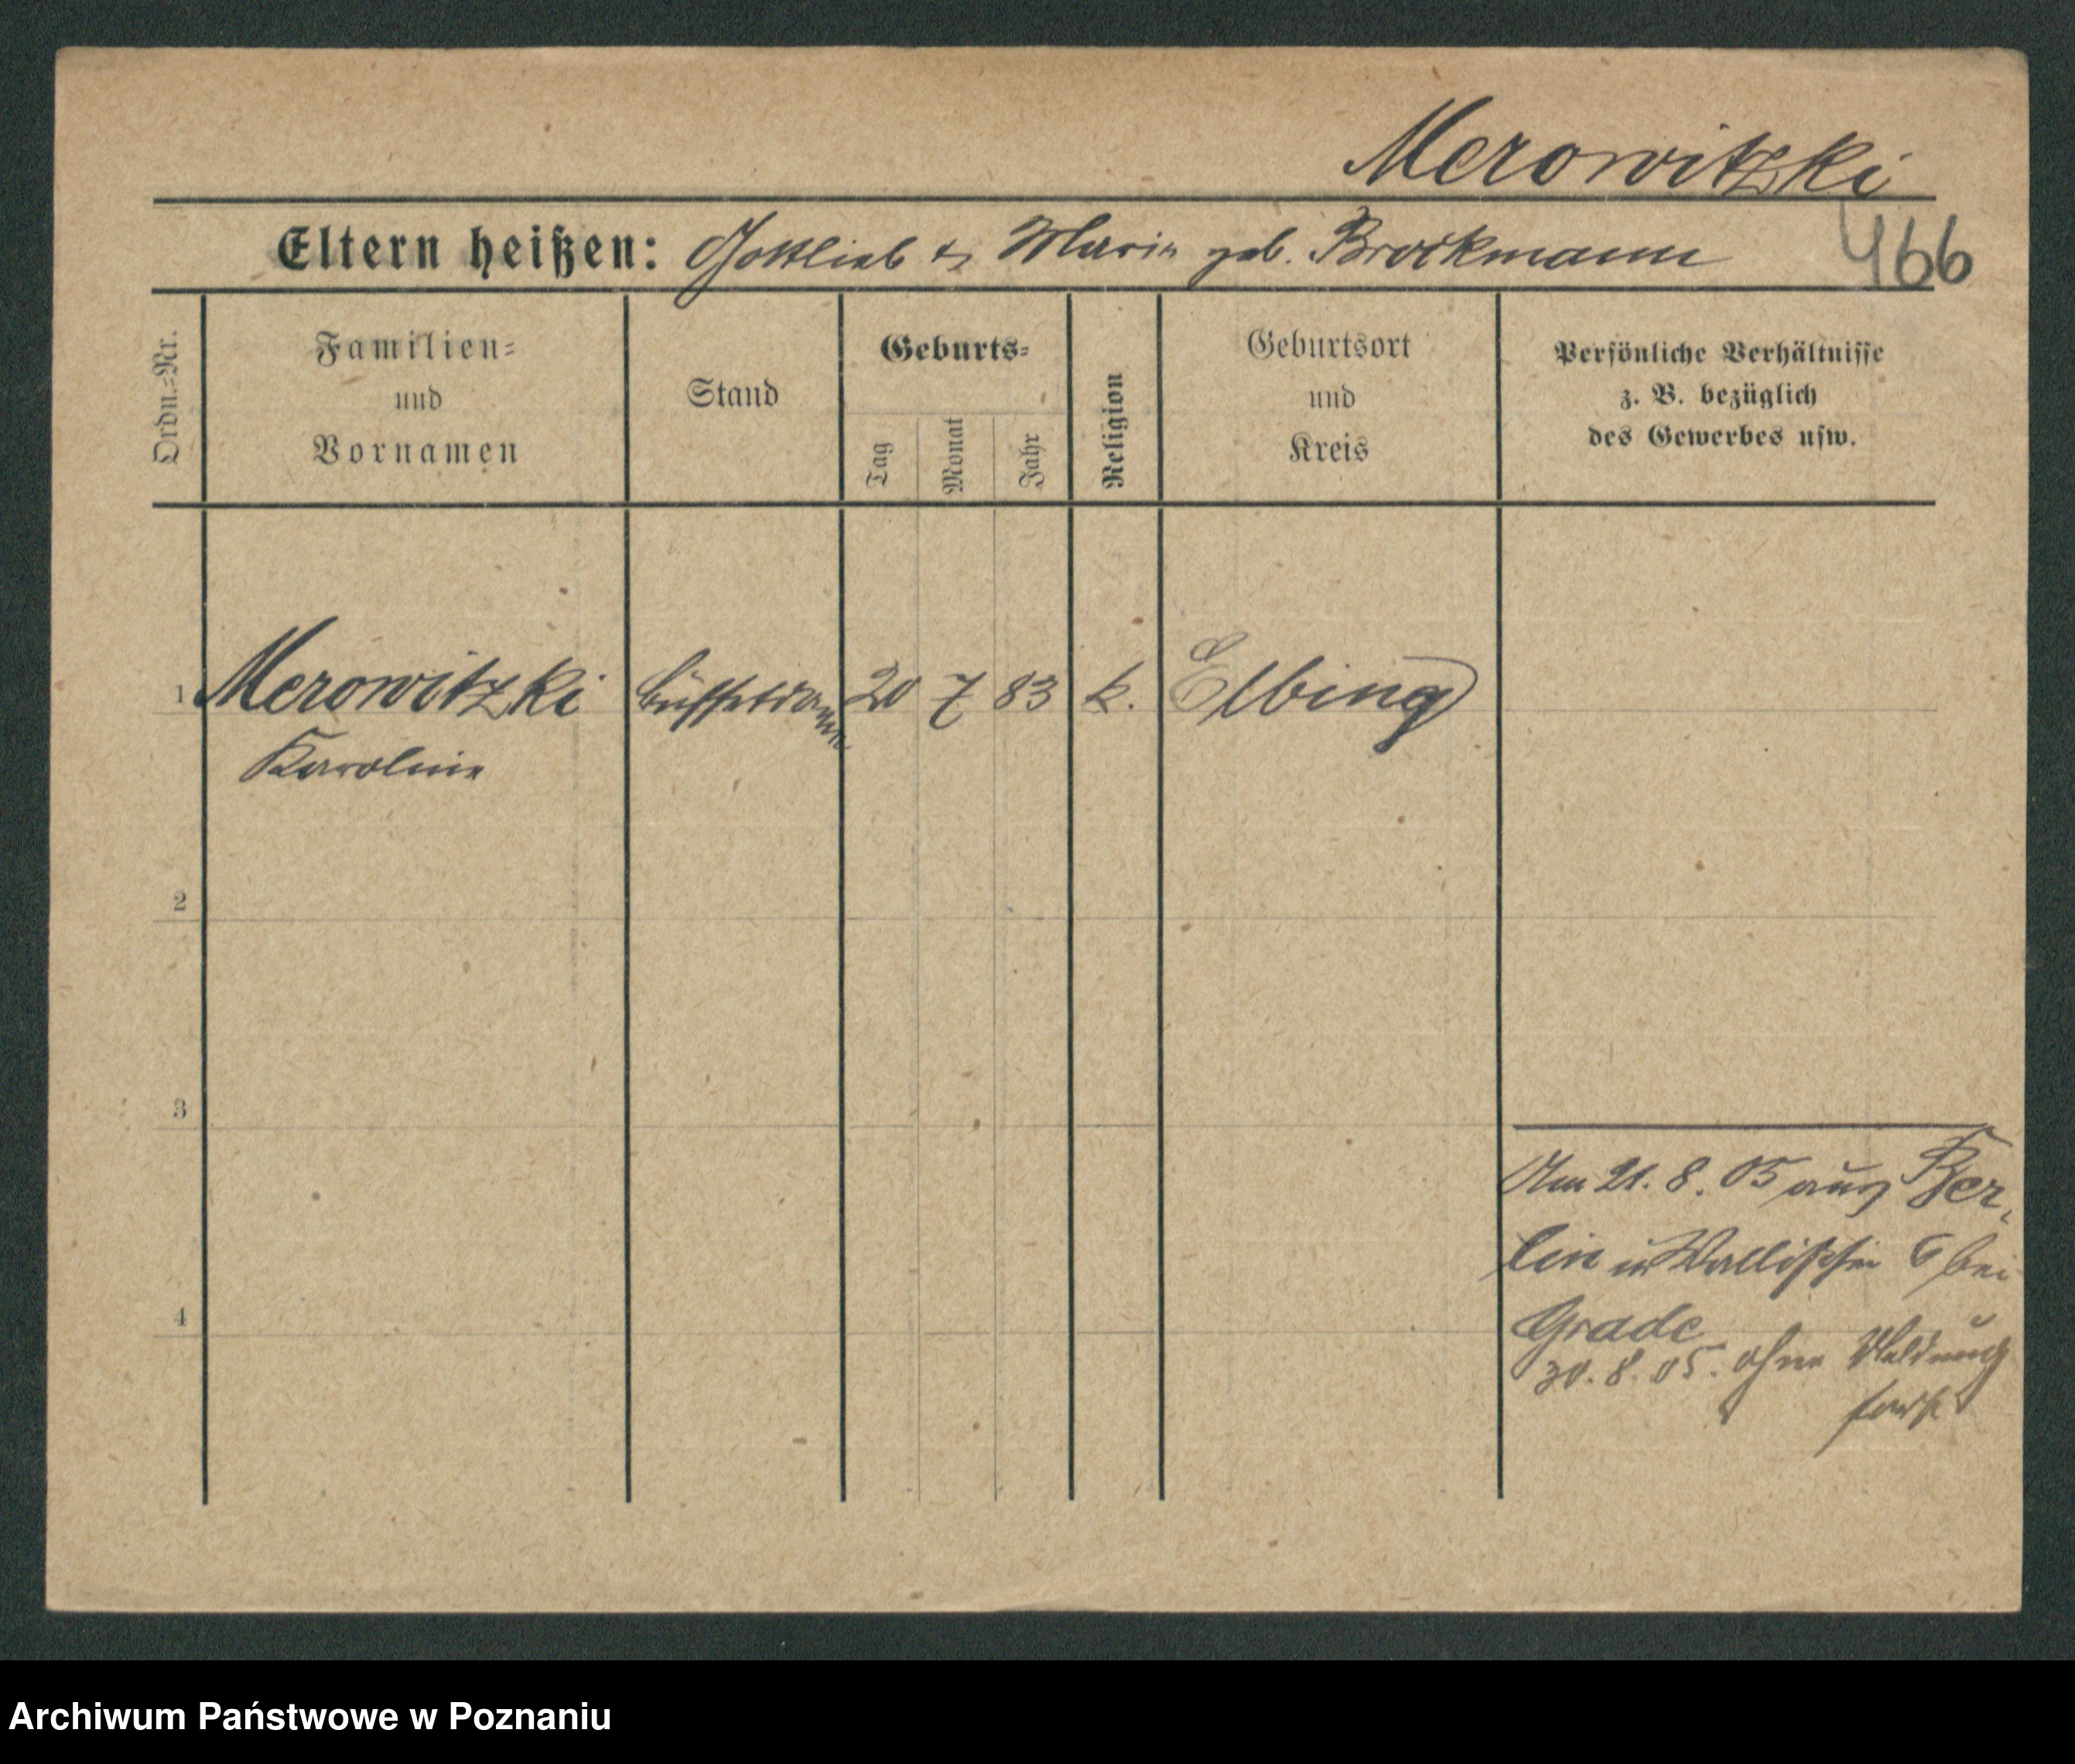 Merowitzki
Eltern heißen: Gottlieb & Marie geb. Brockmann
466
Ordn.=Nr.
Familien=
und
Vornamen
Stand
Geburts=
Tag
Monat
Jahr
Religion
Geburtsort
und
Kreis
Persönliche Verhältnisse
z. B. bezüglich
des Gewerbes usw.
1 Merowitzki 20 7 83 k. Elbing
Karoline
2
3
4
Am 21. 8. 05 aus Ber-
lin in Wallischei 6 bei
Grade
30. 8. 05. ohne Meldung
fort
Archiwum Państwowe w Poznaniu